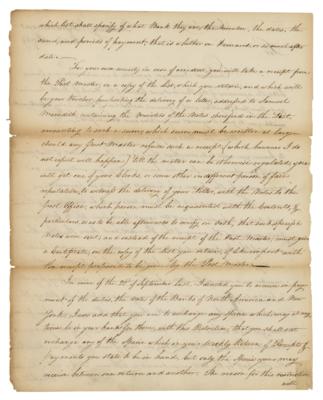 which list shall specify of what Bank they are, the number, the dates, the
sums, and periods of payment; that is whether on demand, or so much after
date.
For your own security in case of accident you will take a receipt from
the Post Master, on a copy of the List, which you retain, and which will
be your Voucher, purporting the delivery of a letter, addressed to Samuel
Meredith containing the Number of the Notes specified in the List,
amounting to such a sum; which sum must be written at large
should any Post Master refuse such a receipt (which however I do
not expect will happen) till the matter can be otherwise regulated, you
will get one of your Clerks or some other indifferent person of fair
reputation, to witness the delivery of your Letter, with the Notes to the
Post Office; which person must be acquainted with the Contents, &
particulars so as to be able afterwards to certify on Oath, that such specified
Notes were sent; and instead of the receipt of the Post Master must give
a Certificate, on the copy of the list you retain, of like import with
the receipt proposed to be given by the Post Master.
In mine of the 22d of September last, I directed you to receive in pay-
ment of the duties, the Notes of the Banks of North America and New
York. I now add that you are to exchange any specie which may at any
time be in your hands for them; with this Restriction, that you shall not
exchange any of the Specie which on your Weekly Return of Receipts &
payments you state to be in hand; but only the Specie you may
receive between one return and another. The reason for this restriction